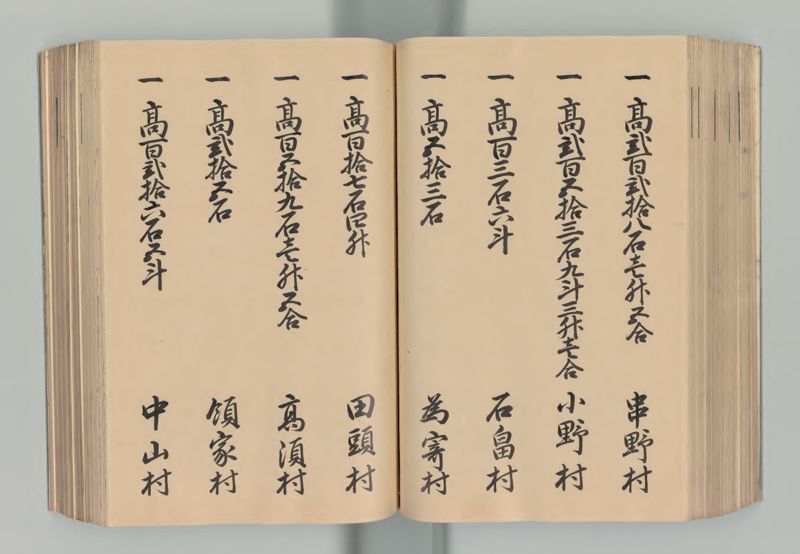 一 高弐百弐拾八石壱升五合 串野村
一 高弐百五拾三石九斗三升壱合 小野村
一 高百三石六斗 石畠村
一 高五拾三石 為寄村
一 高百拾七石四升 田頭村
一 高百五拾九石壱升五合 高須村
一 高弐拾五石 領家村
一 高百弐拾六石五斗 中山村